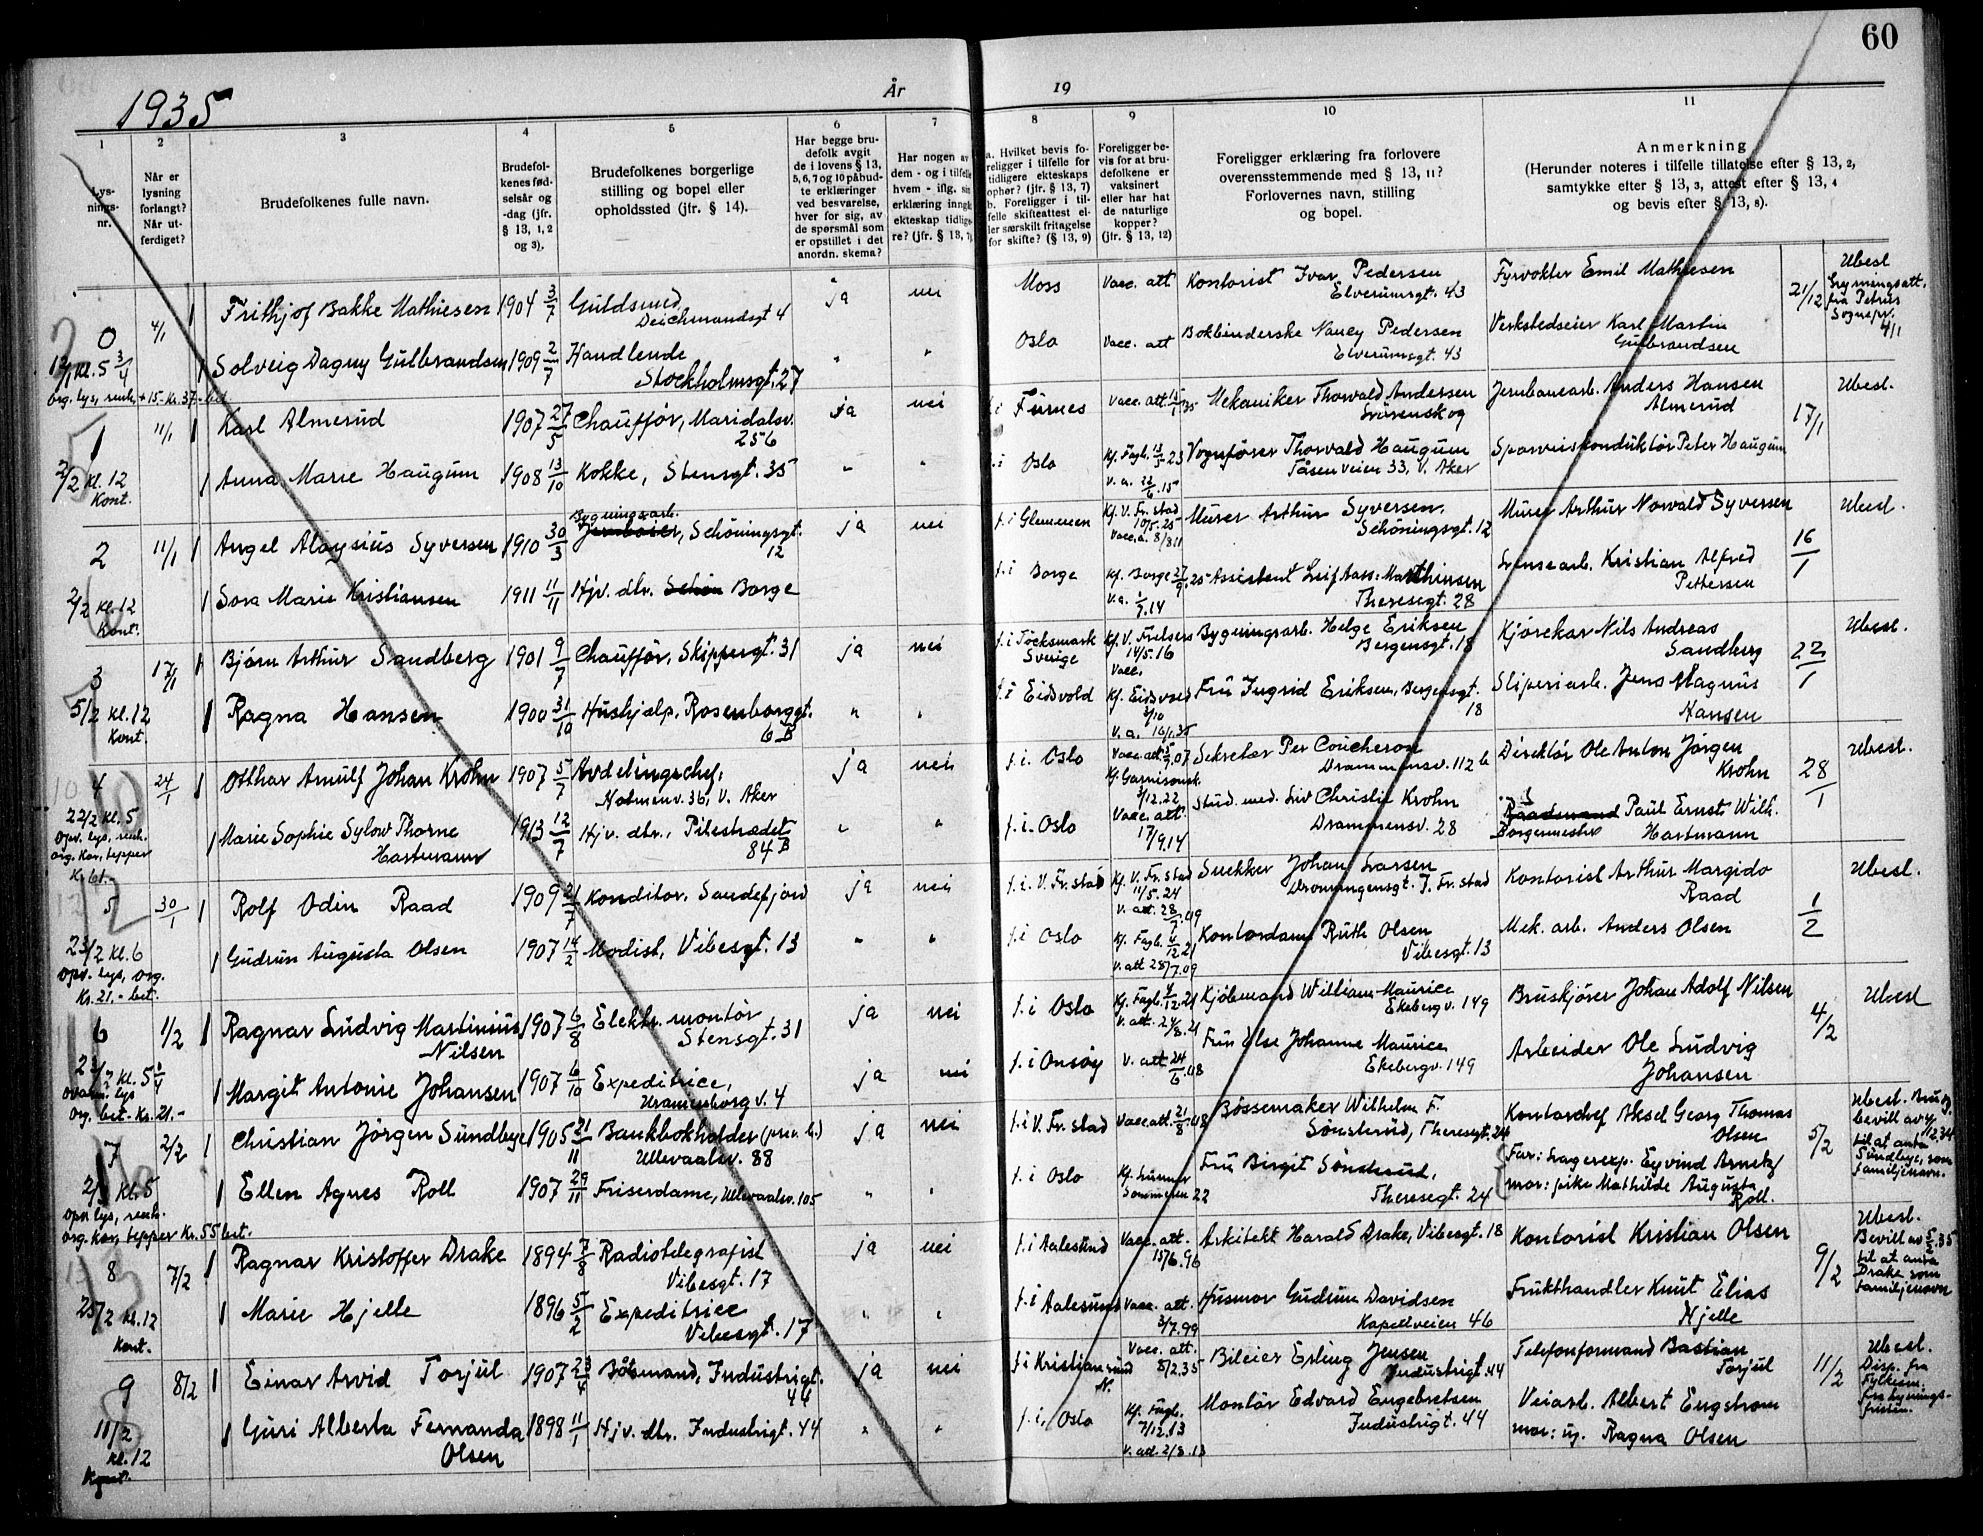 60
1935
År
19
1
2
3
4
5
6
7
8
9
10
11
Lys-
nings-
nr.
Når er
lysning
forlangt?
Når ut-
ferdiget?
Brudefolkenes fulle navn.
Brudefol-
kenes fød-
selsår og
-dag (jfr.
§ 13, 1, 2
og 3).
Brudefolkenes borgerlige
stilling og bopel eller
opholdssted (jfr. § 14).
Har begge bru-
defolk avgit
de i lovens § 13,
5, 6, 7 og 10 påbud-
te erklæringer
ved besvarelse,
hver for sig, av
de spørsmål som
er opstillet i det
anordn. skema?
Har nogen av
dem - og i tilfelle
hvem - iflg. sin
erklæring inngått
ekteskap tidlige-
re? (jfr. § 13, 7)
a. Hvilket bevis fo-
religger i tilfelle for
tidligere ekteskaps
ophør? (jfr. § 13, 7)
b. Foreligger i til-
felle skifteattest el-
ler særskilt fritagelse
for skifte? (§ 13, 9)
Foreligger be-
vis for at bru-
defolkene er
vaksinert
eller har hat
de naturlige
kopper?
(jfr. § 13, 12)
Foreligger erklæring fra forlovere
overensstemmende med § 13, 11?
Forlovernes navn, stilling
og bopel.
Anmerkning
(Herunder noteres i tilfelle tillatelse efter § 13, 2,
samtykke efter § 13, 3, attest efter § 13, 4
og bevis efter § 13, 8).
0 4/1 1 Frithjof Bakke Mathiesen 1904 3/7 Guldsmed Deichmandsgt 4 ja nei Moss Vacc. att Kontorist Ivar Pedersen Elverumsgt. 43 Fyrvokter Emil Mathiesen 21/12 Ubesl
Lysningsatt. fra Petrus Sognepr. 4/1
12/1 Kl. 5 3/4 1 Solveig Dagny Gulbrandsen 1909 2/7 Handlende Stockholmsgt. 27 " " Oslo Vacc. att Bokbinderske Nancy Pedersen Elverumsgt. 43 Verkstedseier Karl Martin Gulbrandsen
1 11/1 1 Karl Almerud 1907 27/5 Chauffør, Maridalsv. 256 ja nei f.i Furnes Vacc. att. Mekaniker Thorvald Andersen Jernbanearb. Anders Hansen Almerud 17/1 Ubesl.
2/2 Kl. 12 Kont. 1 Anna Marie Haugum 1908 13/10 Kokke, Stensgt. 35 " " f.i Oslo Kf. Fagb. 13/5 23 Vognfører Thorvald Haugum Tåsenveien 33, V. Aker Sporveiskonduktør Peter Haugum
2 11/1 1 Angel Aloysius Syversen 1910 30/3 Bygningsarb. Schøningsgt. 12 ja nei f.i Glemmen Kf. V. Fr. stad 10/5. 25 Vacc. a. 8/8 11 Murer Arthur Syversen. Schøningsgt. 12 Murer Arthur Norvald Syversen 16/1 Ubesl.
2/2 Kl. 12 Kont. 1 Sora Marie Kristiansen 1911 11/11 Hjv. dtr. Borge f.i Borge Kf. Borge 27/9. 25 Assistent Leif Aass-Marthinsen Theresegt. 28 Lensearb. Kristian Alfred Pettersen
3 17/1 1 Bjørn Arthur Sandberg 1901 9/7 Chauffør, Skippergt. 31 ja nei f.i Töcksmark Sverige Kf. V. Frelsers 14/5. 16 Vacc. Bygningsarb. Helge Eriksen Bergensgt. 18 Kjørekar Nils Andreas Sandberg 22/1 Ubesl.
5/2 Kl. 12 Kont. 1 Ragna Hansen 1900 31/10 Hushjælp, Rosenborggt. 6 B " " f.i Eidsvold Kf. Eidsvold Fru Ingrid Eriksen, Bergensgt. 18 Sliperiarb. Jens Magnus Hansen
4 24/1 1 Otthar Arnulf Johan Krohn 1907 5/7 Avdelingschef, Holmenv. 36, V. Aker ja nei f.i. Oslo Kf. Garnisonsk. 3/12.22 Sekretær Per Coucheron Drammensv. 112 b Direktør Ole Anton Jørgen Krohn 28/1 Ubesl.
22/2 Kl. 5 1 Marie Sophie Sylow Thorne Hartmann 1913 12/7 Hjv. dtr., Pilestrædet 84 B " " f.i. Oslo Vacc. att. 17/9.14 Stud. med. Siv Christie Krohn Drammensv. 28 Raadmand Borgermester Paul Ernst Wilh. Hartmann
5 30/1 1 Rolf Odin Raad 1909 21/7 Konditor, Sandefjord ja nei f.i. V. Fr. stad Kf. V. Fr. stad 11/5. 24 Snekker Johan Larsen Dronningensgt. 7. Fr. stad Kontorist Arthur Margido Raad 1/2 Ubesl.
23/2 Kl. 6 opv. lys, org. Kr. 21.- bet. 1 Gudrun Augusta Olsen 1907 14/2 Modist, Vibesgt. 13 " " f.i Oslo V. att 28/7.09 Kontordame Ruth Olsen Vibesgt. 13 Mek. arb. Anders Olsen
6 1/2 1 Ragnar Ludvig Martinius Nilsen 1907 6/8 Elektr. montør Stensgt. 31 ja nei f.i Oslo Kjøbmand William Maurice Ekeberg v. 149 Bruskjører Johan Adolf Nilsen 4/2 Ubesl
1 Margit Antonie Johansen 1907 6/10 Expeditrice, Uranienborg v. 4 ja nei f.i Onsøy V. att 24/6. 08 Fru Else Johanne Maurice Ekebergv. 149 Arbeider Ole Ludvig Johansen
7 2/2 1 Christian Jörgen Sundbye 1905 21/11 Bankbokholder Ullevaalsv. 88 ja nei f.i V. Fr. stad Vacc. att. 21/8. 08 Bössemaker Wilhelm F. Sønsterud, Theresegt. 24 Kontorchef Aksel Georg Thomas Olsen 5/2 Ubesl.
bevill av til at anta Sundbye, som familjenavn.
2/3 Kl. 5 1 Ellen Agnes Roll 1907 29/11 Friserdame, Ullevaalsv. 105 " " f.i Oslo Fru Birgit Sønsterud, Theresegt. 24 Far: Lagerexp. Eyvind Arnetz mor: pike Mathilde Augusta Roll.
org. Kor, tepper Kr. 55 bet.
8 7/2 1 Ragnar Kristoffer Drake 1894 7/8 Radiotelegrafist Vibesgt. 17 ja nei f.i Aalesund Vacc. att. 15/6. 96 Arkitekt Harald Drake, Vibesgt. 18 Kontorist Kristian Olsen 9/2 Ubesl.
Bevill av til at anta Drake som familjenavn
25/2 Kl. 12 Kont. 1 Marie Hjelle 1896 5/2 Expeditrice Vibesgt. 17 " " f.i Aalesund Vacc. att. 3/7.99 Husmor Gudrun Davidsen Kapellveien 46 Frukthandler Knut Elias Hjelle
9 8/2 1 Einar Arvid Torjul 1907 23/4 Båtsmand, Industrigt. 44 ja nei f.i Kristiansund N. Vacc. att. 8/2.35 Bileier Erling Jensen Industrigt. 44 Telefonformand Bastian Torjul 11/2 Ubesl.
Disp. fra Fylkesm. fra lysnings-fristen.
11/2 Kl. 12 Kont. 1 Guri Alberta Fernanda Olsen 1898 11/1 Hjv. dtr. Industrigt. 44 " " f.i. Oslo Kf. Fagb. 7/12.13 V. att. 2/8. 13 Montør Edvard Engebretsen Industrigt. 44 Veiarb. Albert Engstrøm mor: ug. Ragna Olsen